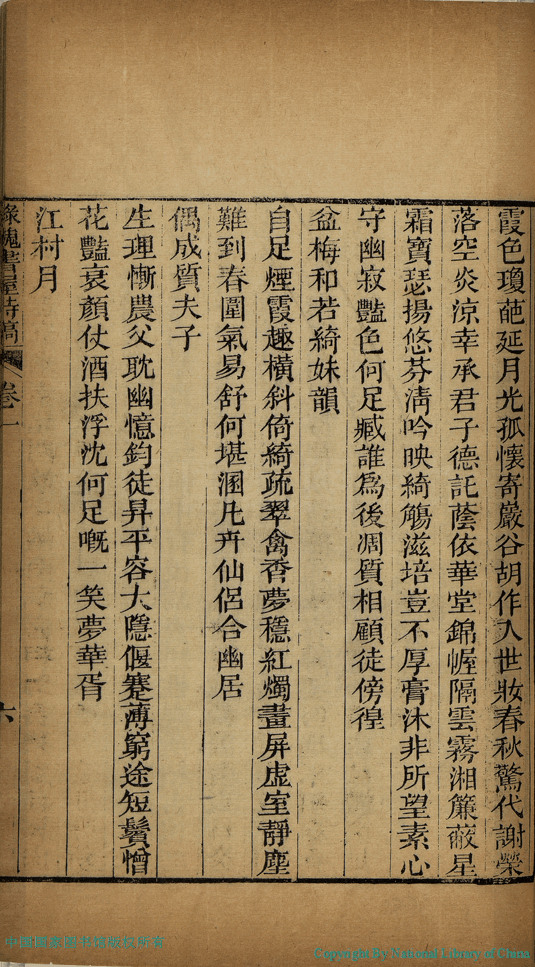 霞色瓊葩延月光孤懷寄巖谷胡作入世妝春秋驚代謝榮
落空炎涼幸承君子德託蔭依華堂錦幄隔雲霧湘簾蔽星
霜寶瑟揚悠芬清吟映綺觴滋培豈不厚膏沐非所望素心
守幽寂豔色何足臧誰為後凋質相顧徒傍徨
盆梅和若綺妹韻
自足煙霞趣橫斜倚綺疏翠禽香夢穩紅燭畫屏虛室靜塵
難到春圍氣易舒何堪溷凡卉仙侶合幽居
偶成質夫子
生理慚農父耽幽憶鈞徒昇平容大隱偃蹇薄窮途短鬢憎
花豔衰顏仗酒扶浮沈何足嘅一笑夢華胥
江村月
綠槐書屋詩稿
卷一
六
中國國家圖書館版權所有
Copyright By National Library of China